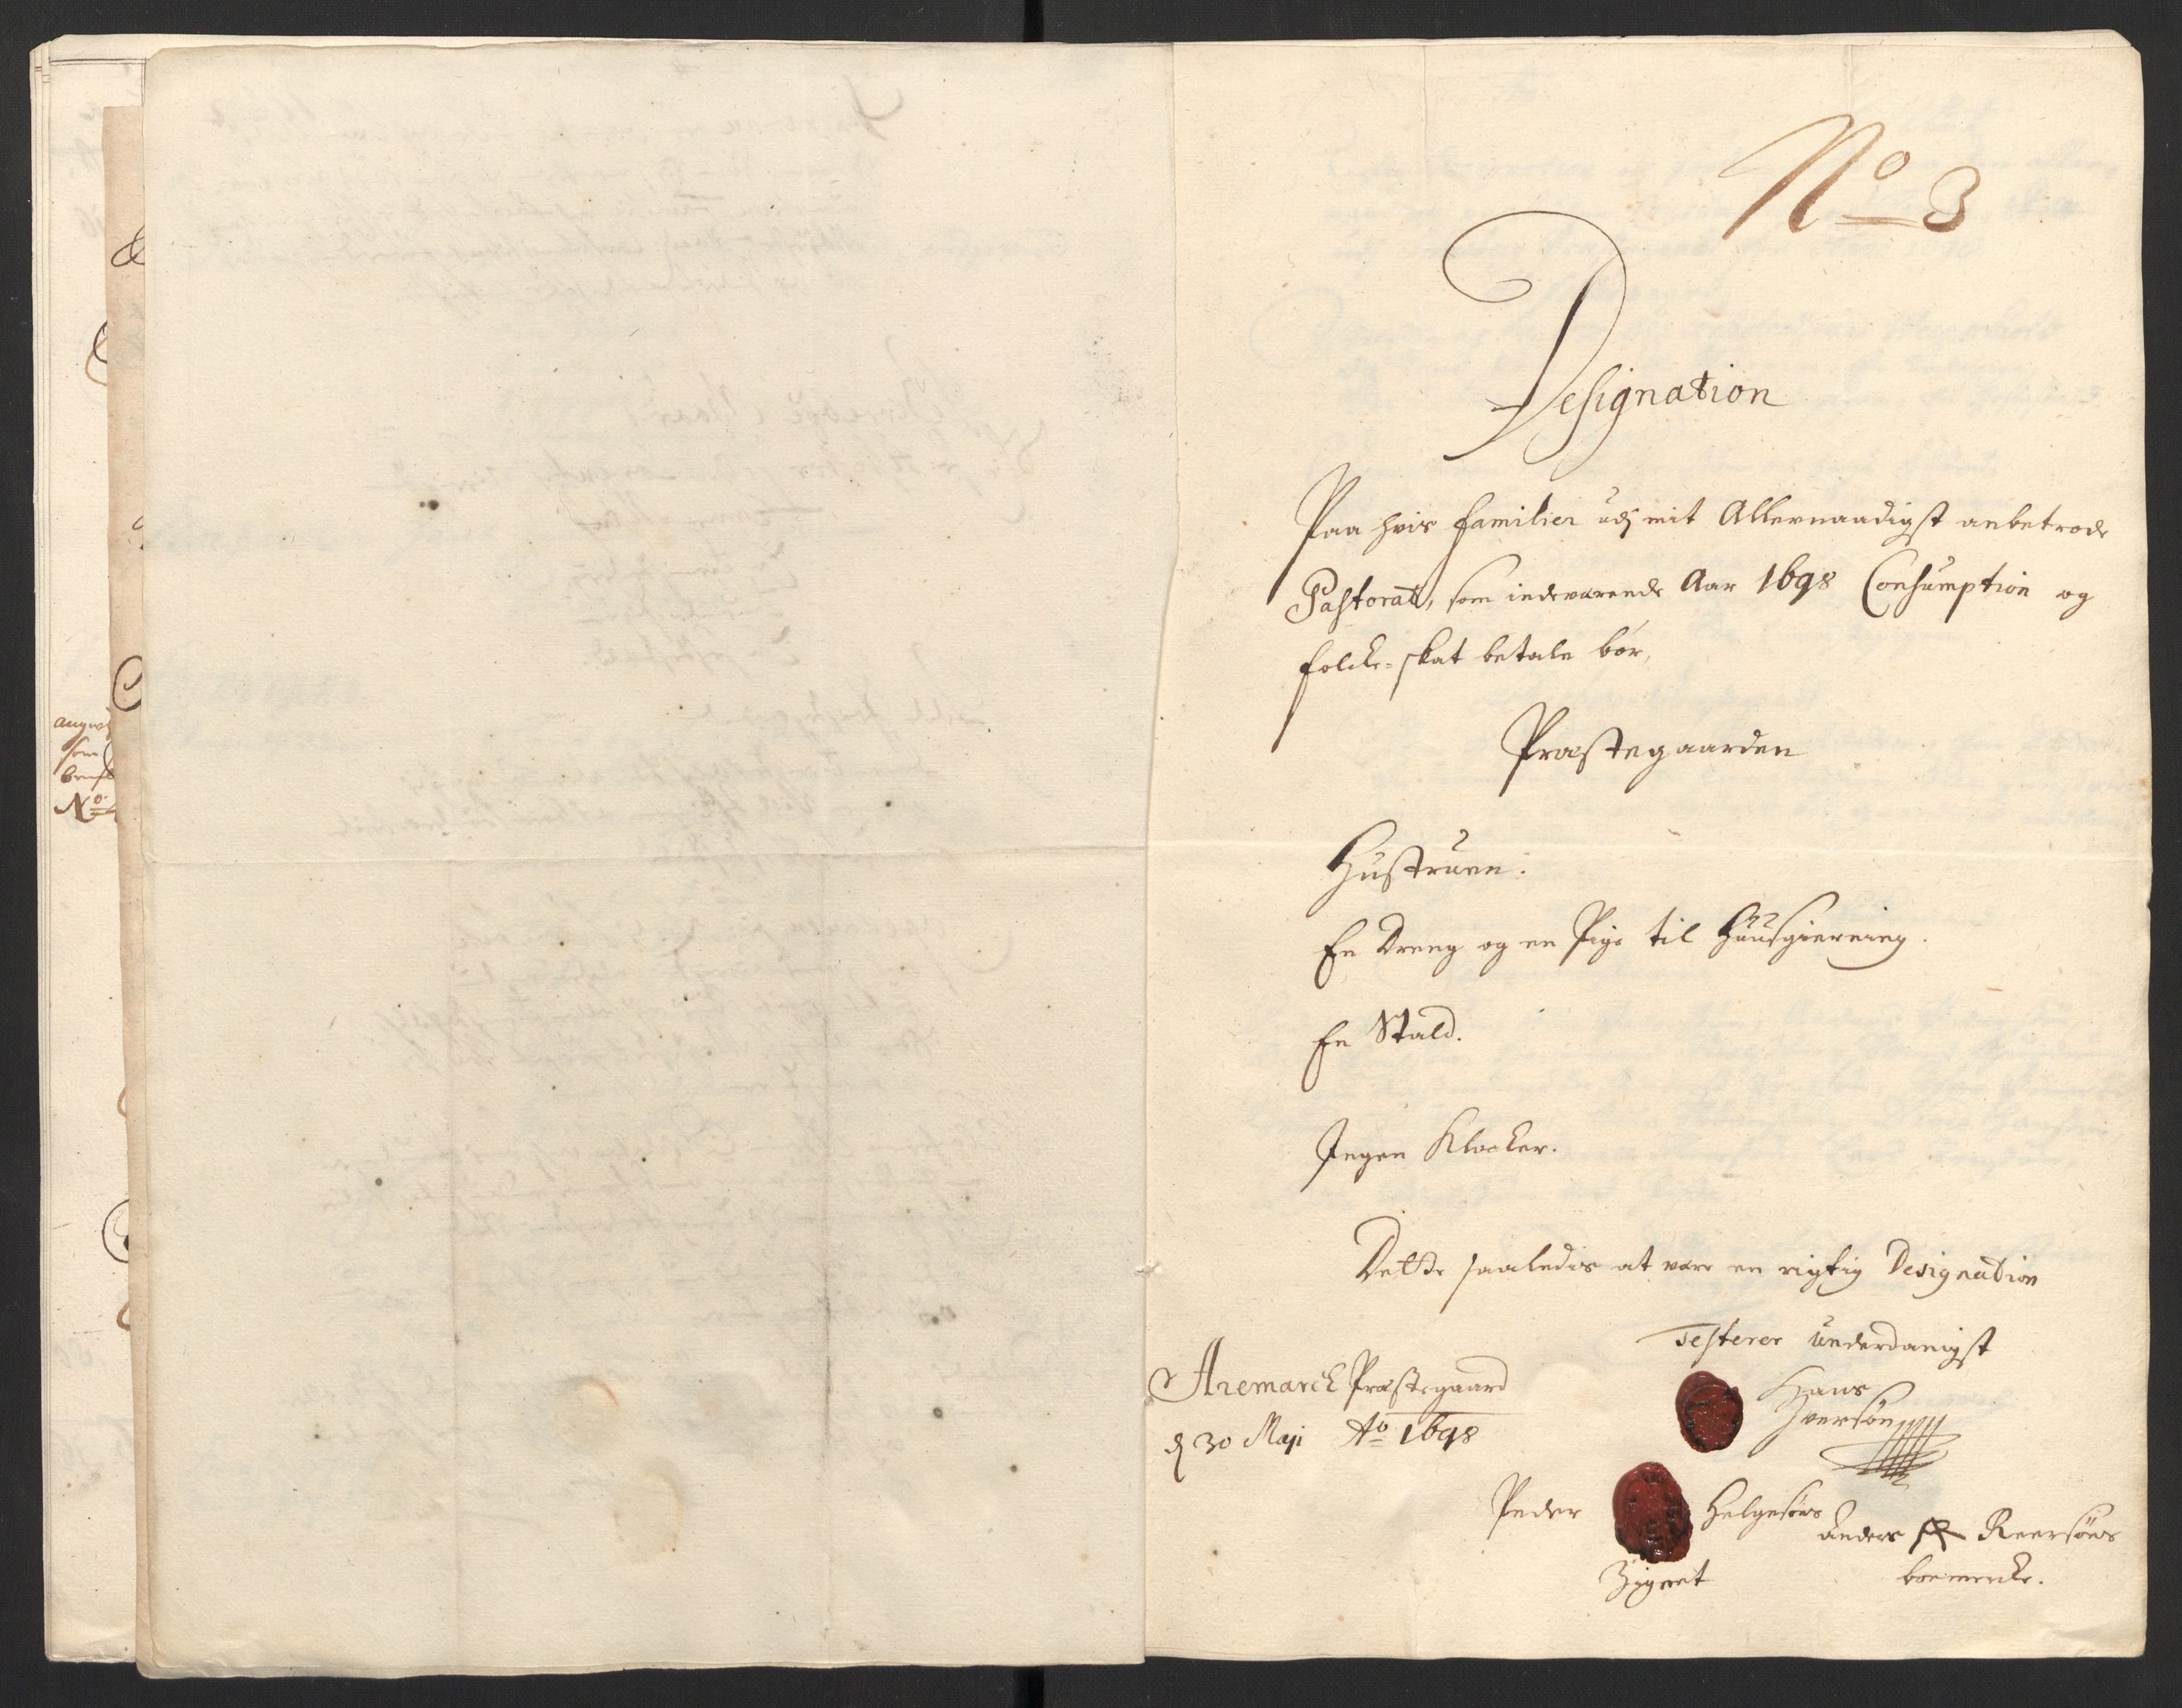 No 3
Designation
Paa hvis familier udj mit Allernaadigst anbetrode
Pastorat, som indeværende Aar 1698 Consumption og
folcke-skat betale bör,
Præstegaarden
Hustruen.
En Dreng og en Pige til Huusgierning.
En Stald.
Ingen Klocker.
Dette saaledis at være en rigtig Designation
Testerer underdanigst
Aremarck Præstegaard
d 30 Maji Ao 1698
Hans
Iversön
Peder Helgesöns
Zignet
Anders Reersöns
boemercke.
augws
som
No